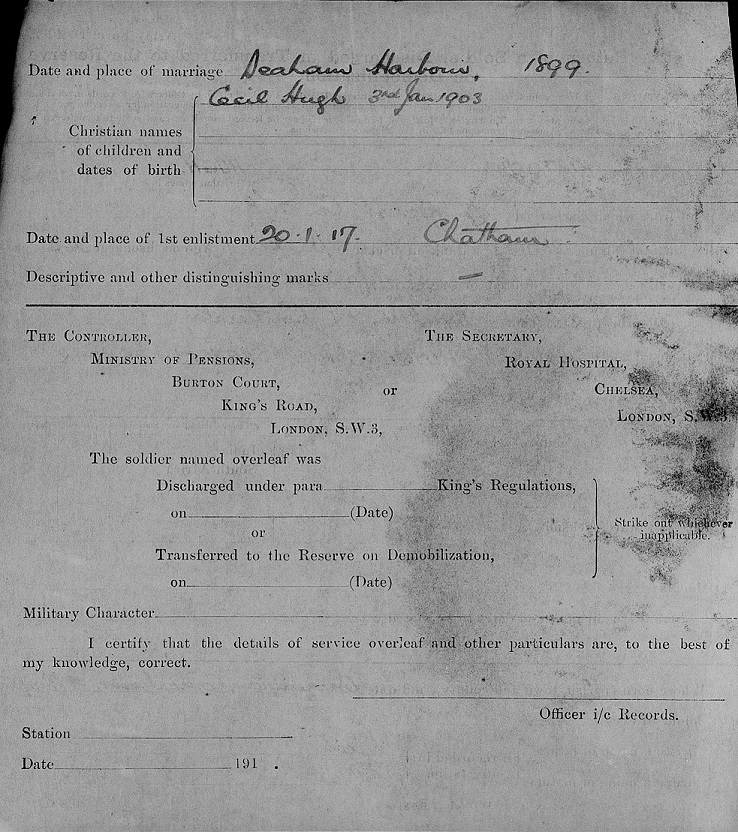 Date and place of marriage Seaham Harbour, 1899.
Cecil Hugh 3rd Jan 1903
Christian names
of children and
dates of birth
Date and place of 1st enlistment 20.1.17. Chatham
Descriptive and other distinguishing marks —
THE CONTROLLER, THE SECRETARY,
MINISTRY OF PENSIONS, ROYAL HOSPITAL,
BURTON COURT, or CHELSEA,
KING'S ROAD, LONDON, S.W.3.
LONDON, S.W.3,
The soldier named overleaf was
Discharged under para King's Regulations,
on (Date) Strike out whichever
or inapplicable.
Transferred to the Reserve on Demobilization,
on (Date)
Military Character
I certify that the details of service overleaf and other particulars are, to the best of
my knowledge, correct.
Officer i/c Records.
Station
Date 191 .